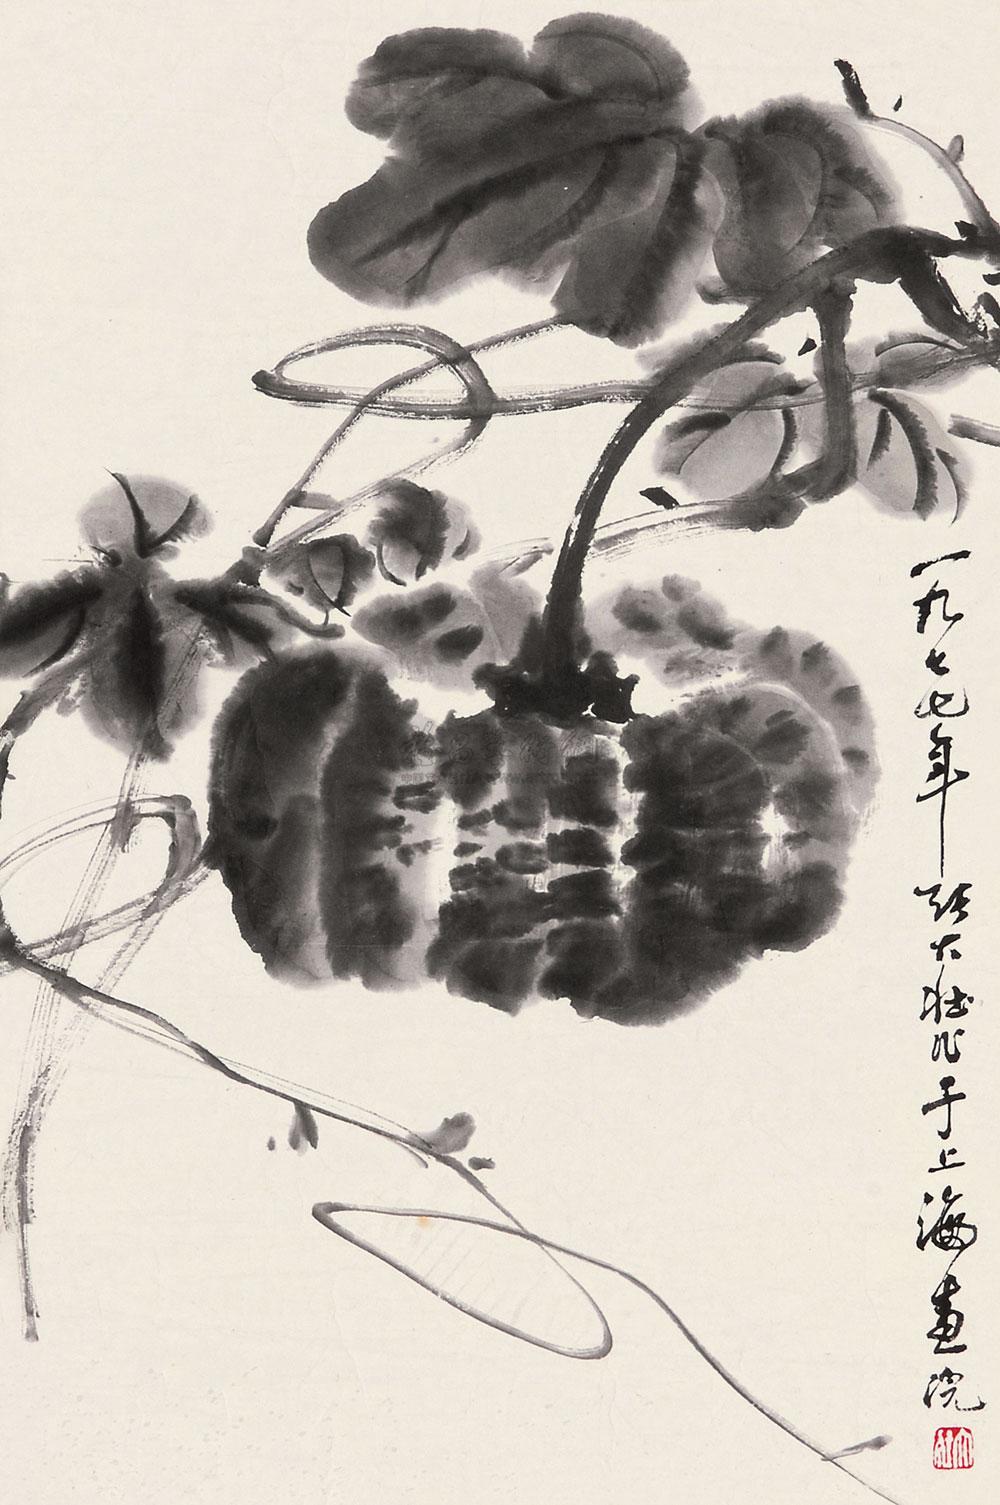 一九七七年张大壮作于上海画院
大壮